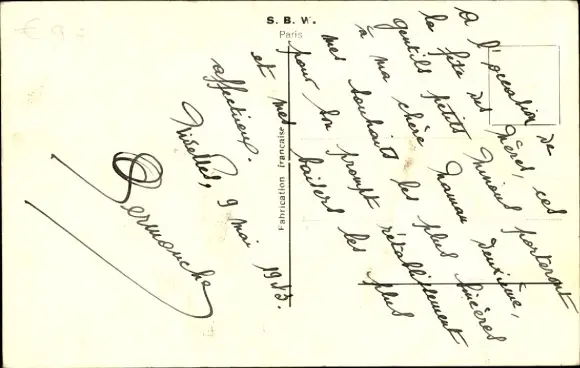 S. B. W.
Paris
Fabrication française
A l'occasion de
la fête des Mères, ces
gentils petits Minous porteront
à ma chère Maman deuxième,
mes souhaits les plus sincères
pour son prompt rétablissement
et mes baisers les plus
affectueux.
9 mai 1953.